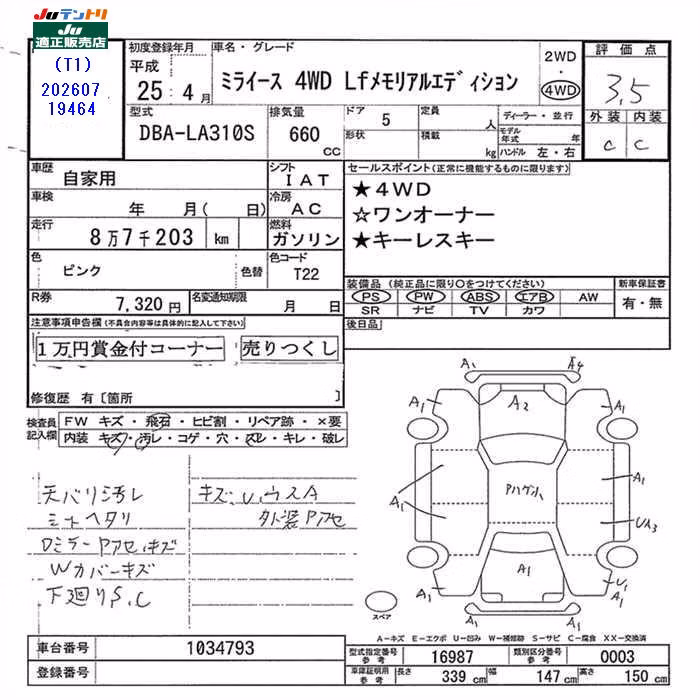 JUテントリ
JU
適正販売店
(T1)
202607
19464
初度登録年月
平成
25・4月
車名・グレード
ミライース 4WD Lfメモリアルエディション
2WD
・
4WD
評価点
3.5
外装 内装
C C
型式
DBA-LA310S
排気量
660
CC
ドア
5
形状
定員
人
積載
kg
ディーラー・並行
モデル年式 年
ハンドル 左・右
車歴
自家用
シフト
IAT
車検
年 月( 日)
冷房
AC
走行
8万7千203 km
燃料
ガソリン
色
ピンク
色替
色コード
T22
R券
7,320円
名変通知期限
月 日
セールスポイント(正常に機能するものに限ります)
★4WD
☆ワンオーナー
★キーレスキー
装備品 (純正品に限り○をつけてください)
PS PW ABS エアB AW
SR ナビ TV カワ
新車保証書
有・無
後日品
注意事項申告欄(不具合内容等は具体的に記入して下さい)
1万円賞金付コーナー 売りつくし
修復歴 有〔箇所 〕
検査員
記入欄
FW キズ・飛石・ヒビ割・リペア跡・×要
内装 キズ・汚レ・コゲ・穴・スレ・キレ・破レ
天バリ汚レ
シートヘタリ
Dミラーアセ、キズ
Wカバーキズ
下廻りS、C
キズ、UウスA
外装アセ
A1 A4
A1 A2 A1
アハゲ
A1 A1
A1 UA3
A1 U1
A1 A1
スペア
A-キズ E-エクボ U-凹み W-補修跡 S-サビ C-腐食 XX-交換済
車台番号
1034793
登録番号
型式指定番号
参考
16987
類別区分番号
参考
0003
車庫証明用
参考
長さ 339 cm 幅 147 cm 高さ 150 cm